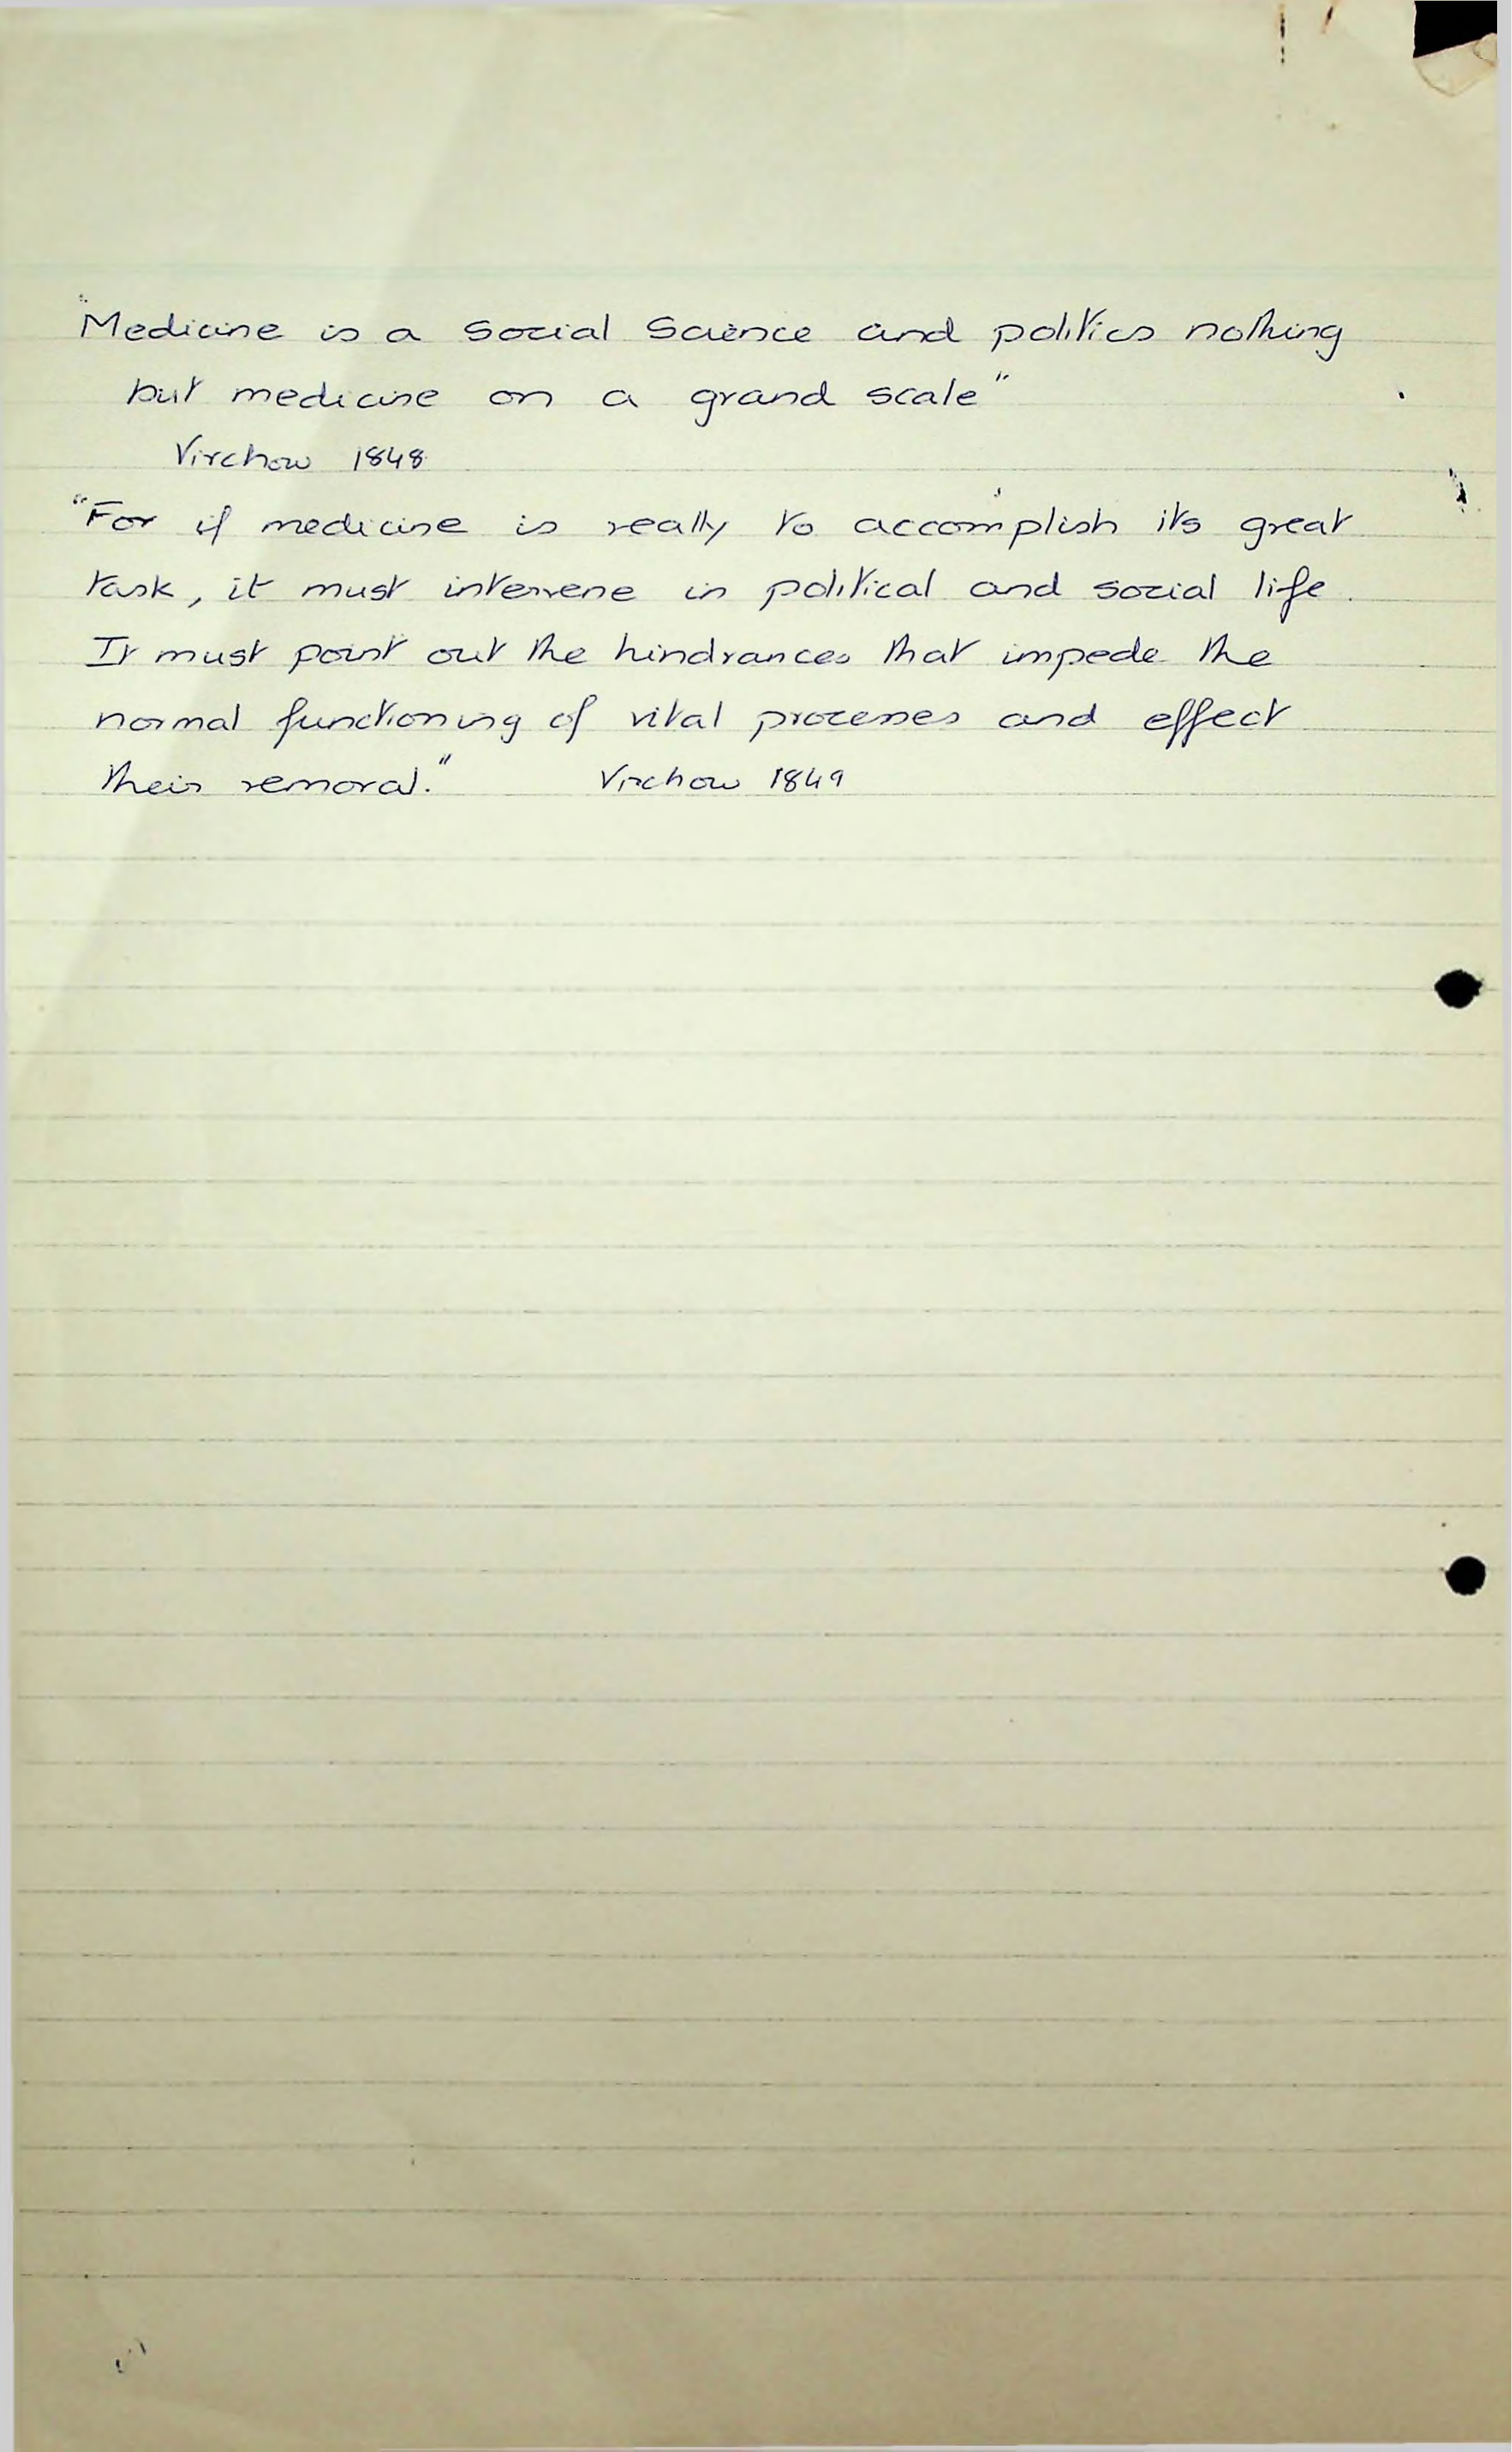 "Medicine is a Social Science and politics nothing
but medicine on a grand scale"
Virchow 1848
"For if medicine is really to accomplish its great
task, it must intervene in political and social life.
It must point out the hindrances that impede the
normal functioning of vital processes and effect
their removal." Virchow 1849